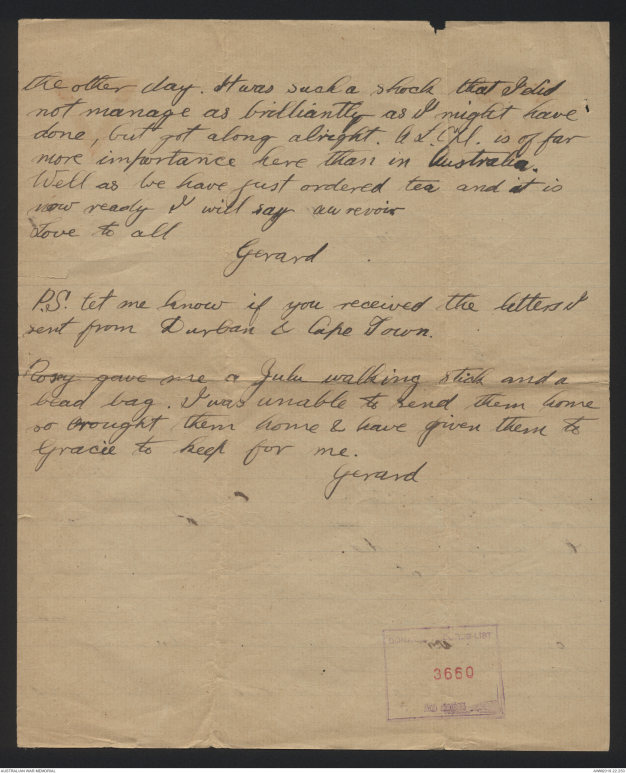 the other day. It was such a shock that I did
not manage as brilliantly as I might have
done, but got along alright. A.L.C.M. is of far
more importance here than in Australia.
Well as we have just ordered tea and it is
now ready I will say au revoir
Love to all
Gerard
P.S. Let me know if you received the letters I
sent from Durban & Cape Town.
Rosy gave me a Zulu walking stick and a
bead bag. I was unable to send them home
so brought them home & have given them to
Gracie to keep for me.
Gerard
LIST
3660
AUSTRALIAN WAR MEMORIAL